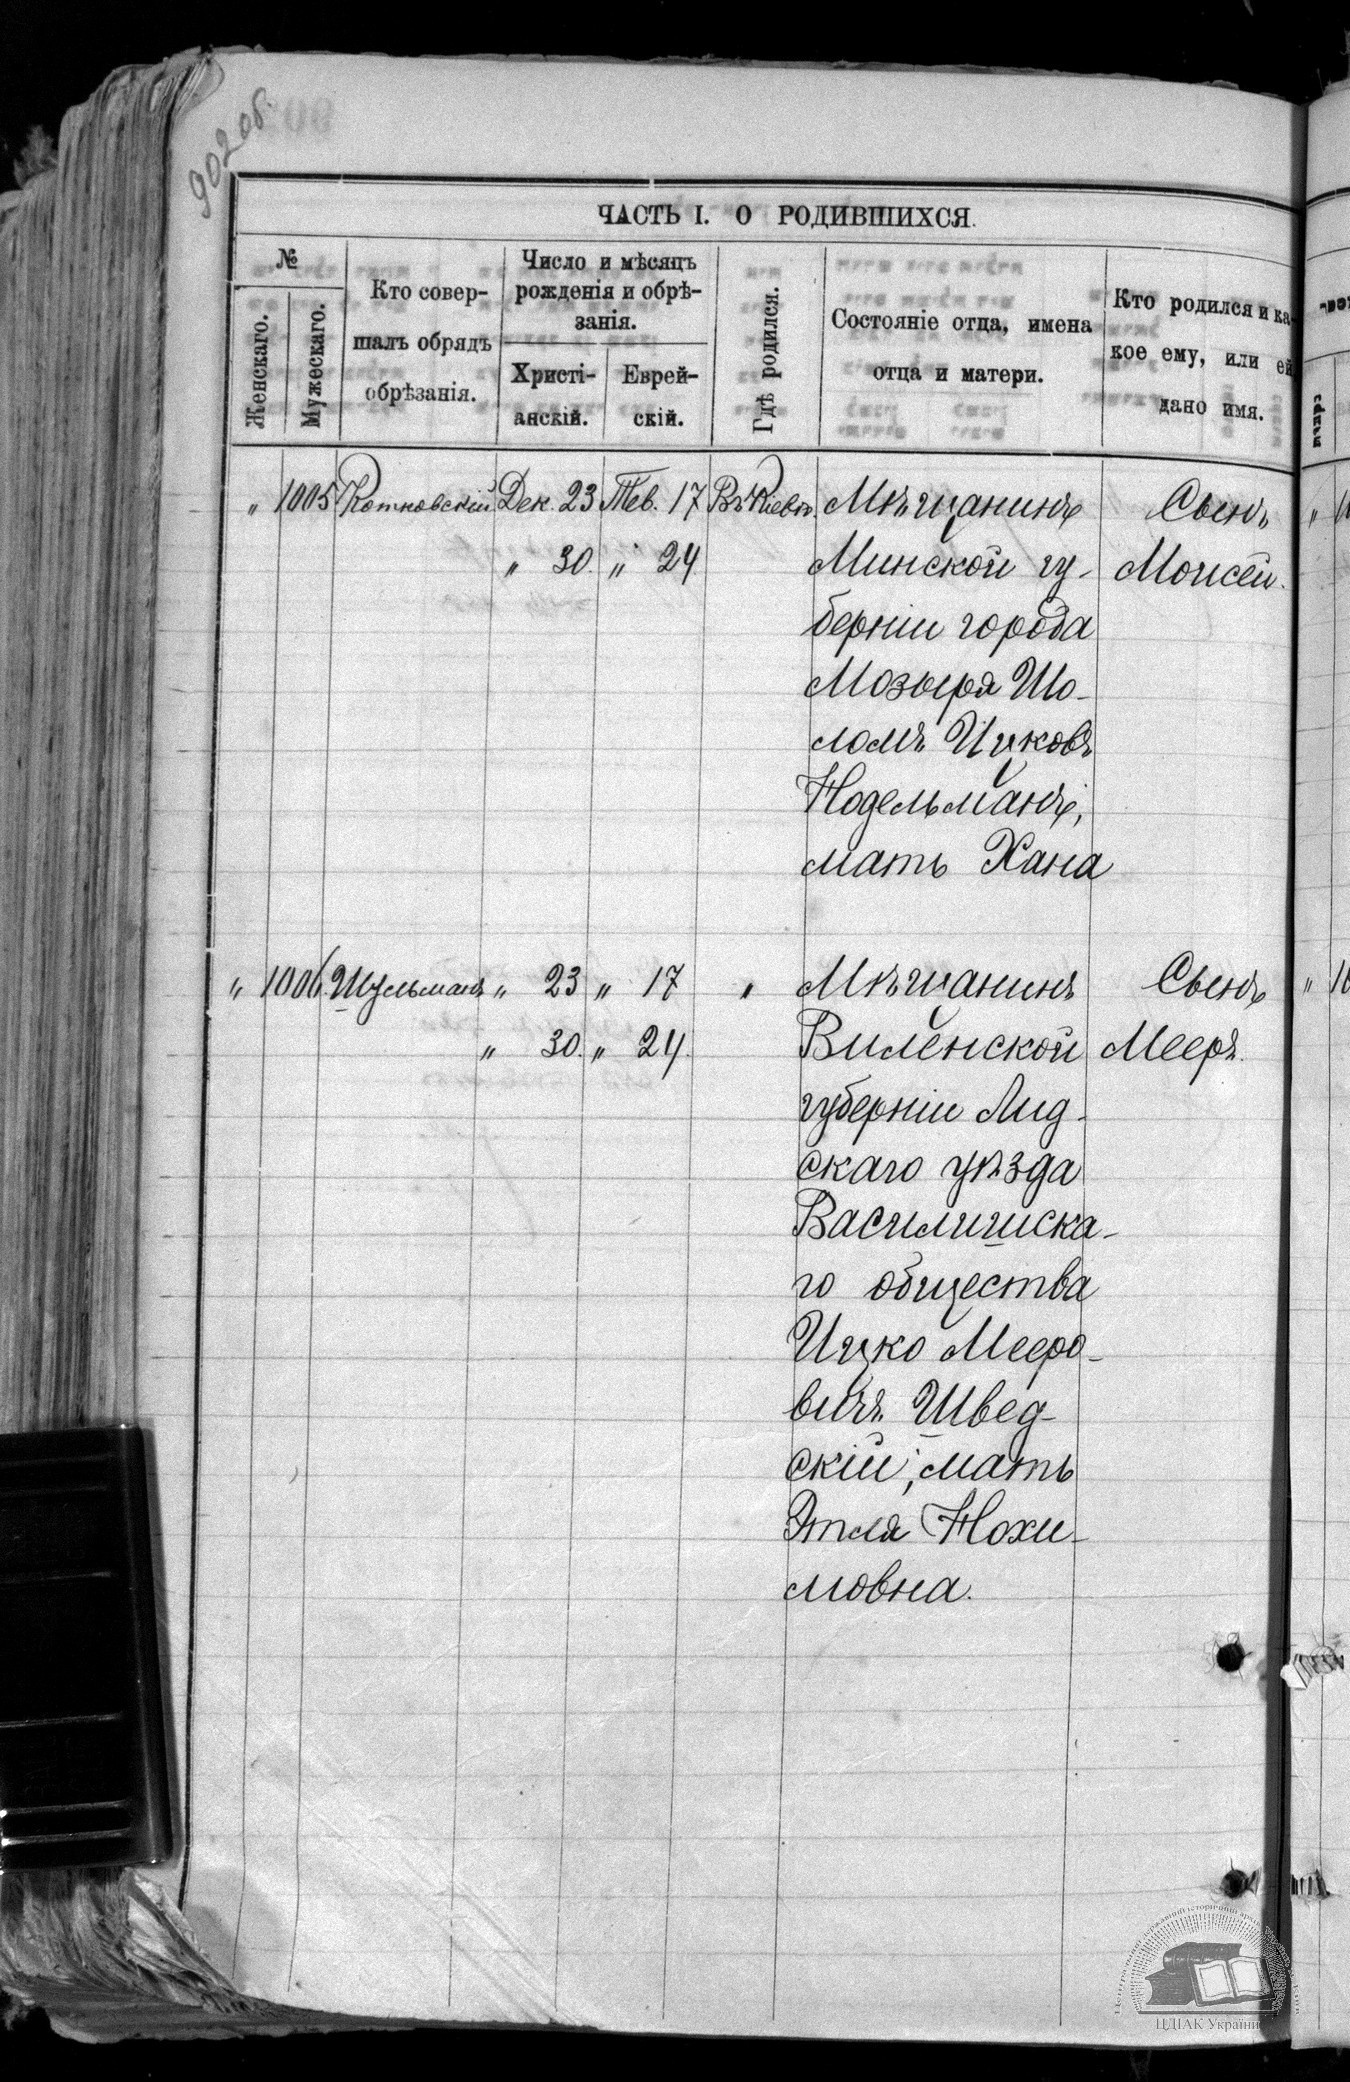 902 об.
ЧАСТЬ I. О РОДИВШИХСЯ.
№
Женскаго.
Мужескаго.
Кто совер-
шалъ обрядъ
обрѣзанія.
Число и мѣсяцъ
рожденія и обрѣ-
занія.
Христі-
анскій.
Еврей-
скій.
Гдѣ родился.
Состояніе отца, имена
отца и матери.
Кто родился и ка-
кое ему, или ей
дано имя.
„ 1005 Котковскій Дек. 23 Тев. 17 Въ Кіевѣ. Мѣщанинъ Сынъ
„ 30. „ 24 Минской гу- Моисей.
берніи города
Мозыря Шо-
ломъ Ицковъ
Нодельманъ,
мать Хана
„ 1006. Шульманъ „ 23 „ 17 „ Мѣщанинъ Сынъ
„ 30. „ 24. Виленской Мееръ.
губерніи Лид-
скаго уѣзда
Василишска-
го общества
Ицко Мееро-
вичъ Швед-
скій, мать
Этля Нохи-
мовна.
ЦДІАК України